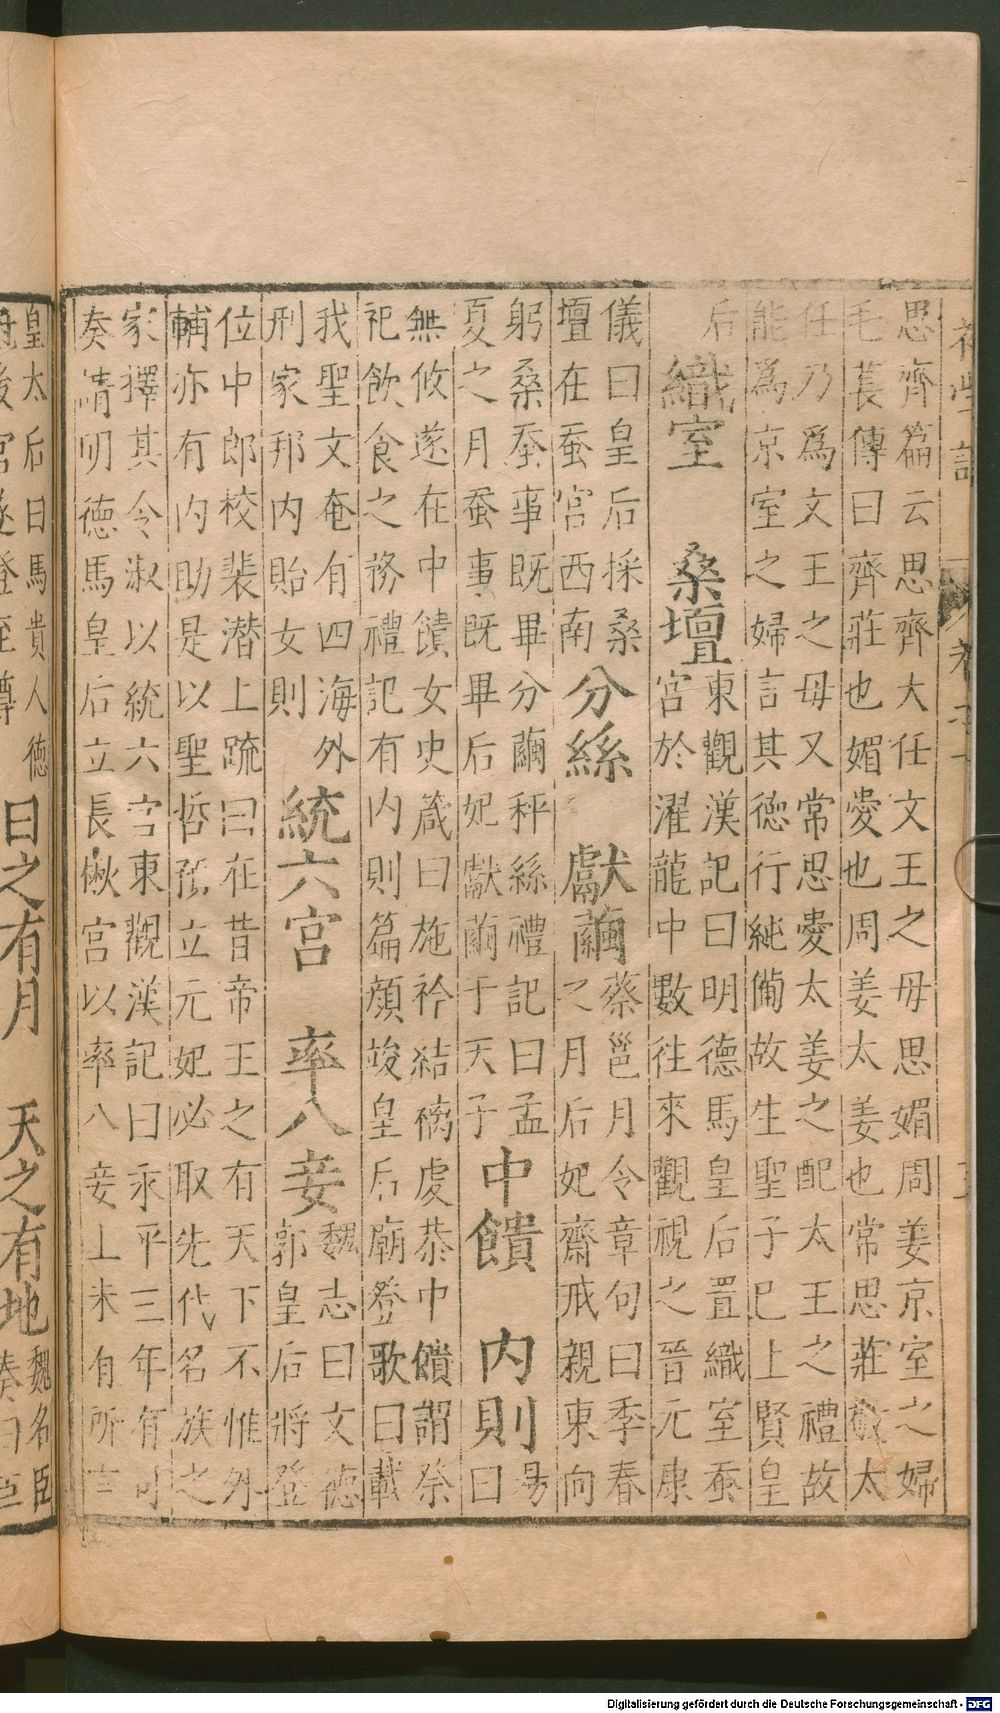 思齊篇云思齊大任文王之母思媚周姜京室之婦
毛萇傳曰齊莊也媚愛也周姜太姜也常思莊敬太
任乃爲文王之母又常思愛太姜之配太王之禮故
能爲京室之婦言其德行純備故生聖子巳上賢皇
后
織室 桑壇
東觀漢記曰明德馬皇后置織室蚕
宮於濯龍中數往來觀視之晉元康
儀曰皇后採桑
壇在蚕宮西南
分絲 獻繭
蔡邕月令章句曰季春
之月后妃齋戒親東向
躬桑蚕事既畢分繭秤絲禮記曰孟
夏之月蚕事既畢后妃獻繭于天子
中饋 內則
易
曰
無攸遂在中饋女史箴曰施衿結褵虔恭中饋謂祭
祀飲食之務禮記有內則篇顔竣皇后廟登歌曰載
我聖文奄有四海外
刑家邦內貽女則
統六宮 率八妾
魏志曰文德
郭皇后將登
位中郎校裴潛上疏曰在昔帝王之有天下不惟外
輔亦有內助是以聖哲預立元妃必取先代名族之
家擇其令淑以統六宮東觀漢記曰永平三年有司
奏請明德馬皇后立長楸宮以率八妾上未有所言
皇太后曰馬貴人德
冠後宮遂登至尊
日之有月 天之有地
魏名臣
奏曰臣
Digitalisierung gefördert durch die Deutsche Forschungsgemeinschaft - DFG